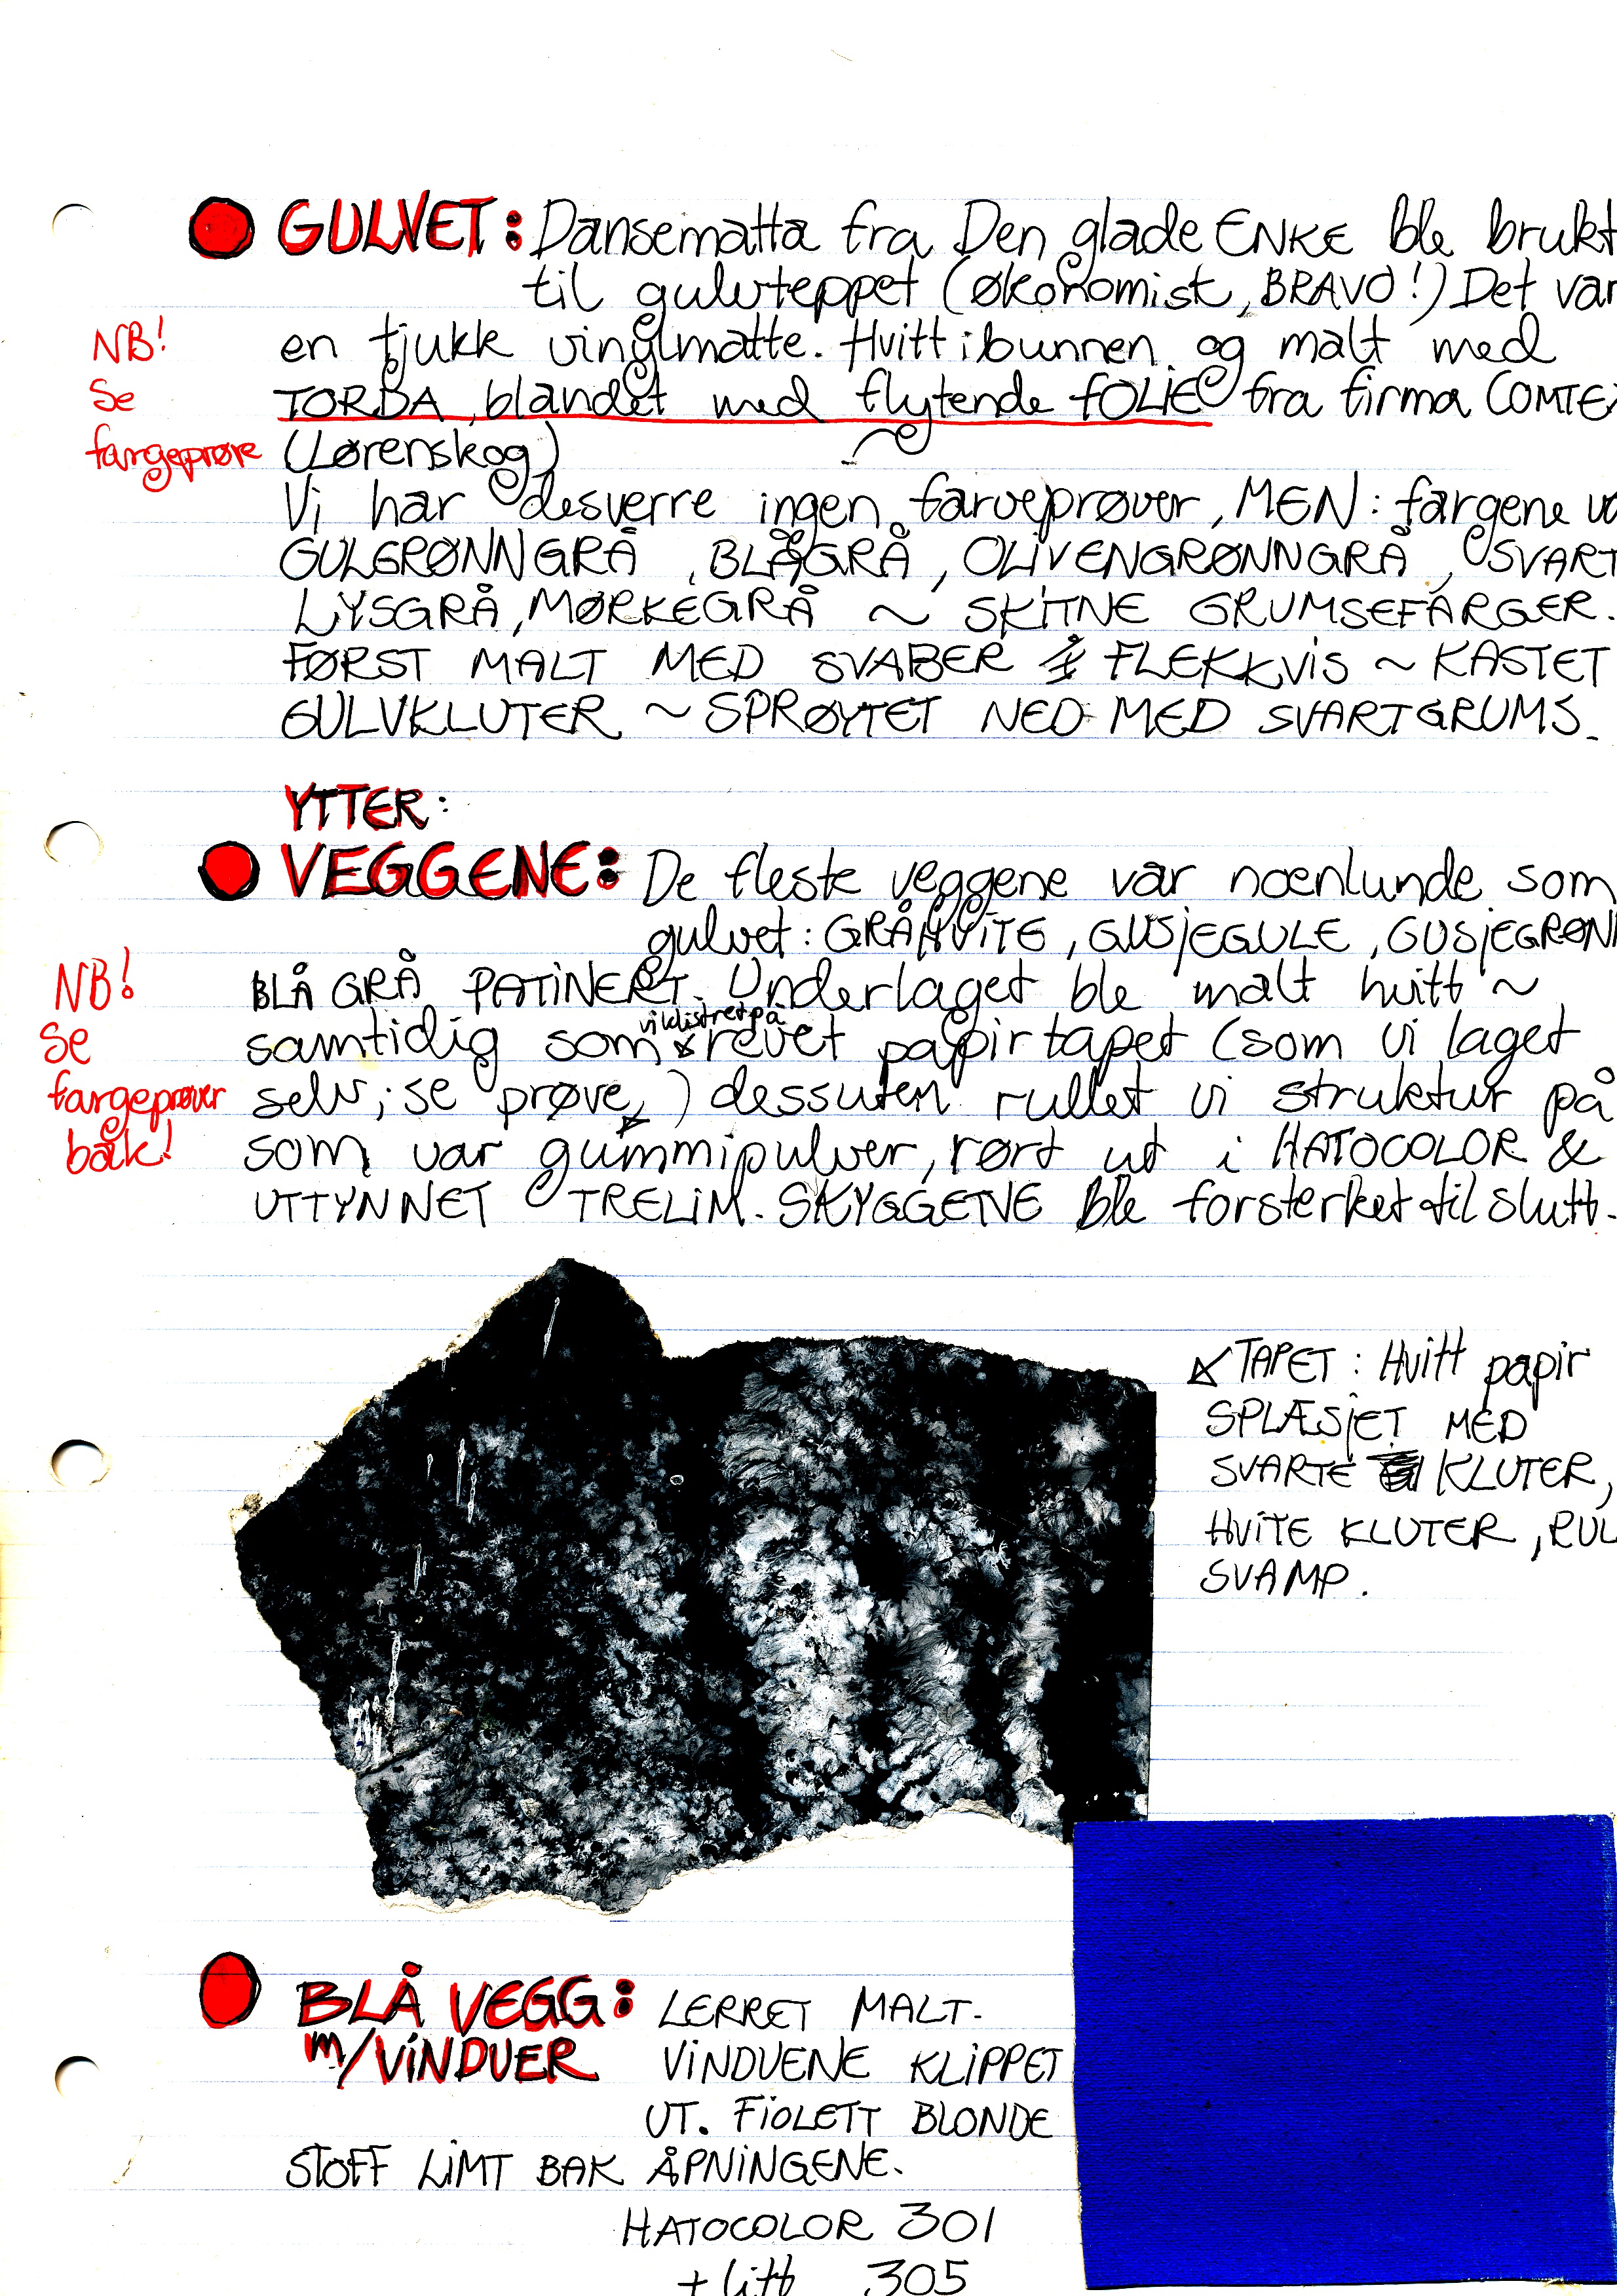 GULVET: Dansematta fra Den glade ENKE ble brukt
til gulvteppet (økonomisk, BRAVO!) Det var
NB! en tjukk vinylmatte. Hvitt i bunnen og malt med
Se TORDA, blandet med flytende FOLIE fra firma COMTEX
fargeprøve (Lørenskog)
Vi har desverre ingen farveprøver, MEN: fargene
GULGRØNNGRÅ, BLÅGRÅ, OLIVENGRØNNGRÅ, SVART
LYSGRÅ, MØRKEGRÅ ~ SKITNE GRUMSEFARGER.
FØRST MALT MED SVABER FLEKKVIS ~ KASTET
GULVKLUTER ~ SPRØYTET NED MED SVARTGRUMS.
YTTER:
VEGGENE: De fleste veggene var noenlunde som
gulvet: GRÅHVITE, GUSJEGULE, GUSJEGRØNN
NB! BLÅ GRÅ PATINERT. Underlaget ble malt hvitt ~
vi klistret på
Se samtidig som revet papirtapet (som vi laget
fargeprøver selv; se prøve,) dessuten rullet vi struktur på
bak! som var gummipulver, rørt ut i HATOCOLOR &
UTTYNNET TRELIM. SKYGGENE ble forsterket til slutt.
TAPET: Hvitt papir
SPLÆSJET MED
SVARTE KLUTER,
HVITE KLUTER, RUL
SVAMP.
BLÅ VEGG: LERRET MALT.
m/VINDUER VINDUENE KLIPPET
UT. FIOLETT BLONDE
STOFF LIMT BAK ÅPNINGENE.
HATOCOLOR 301
+ litt 305